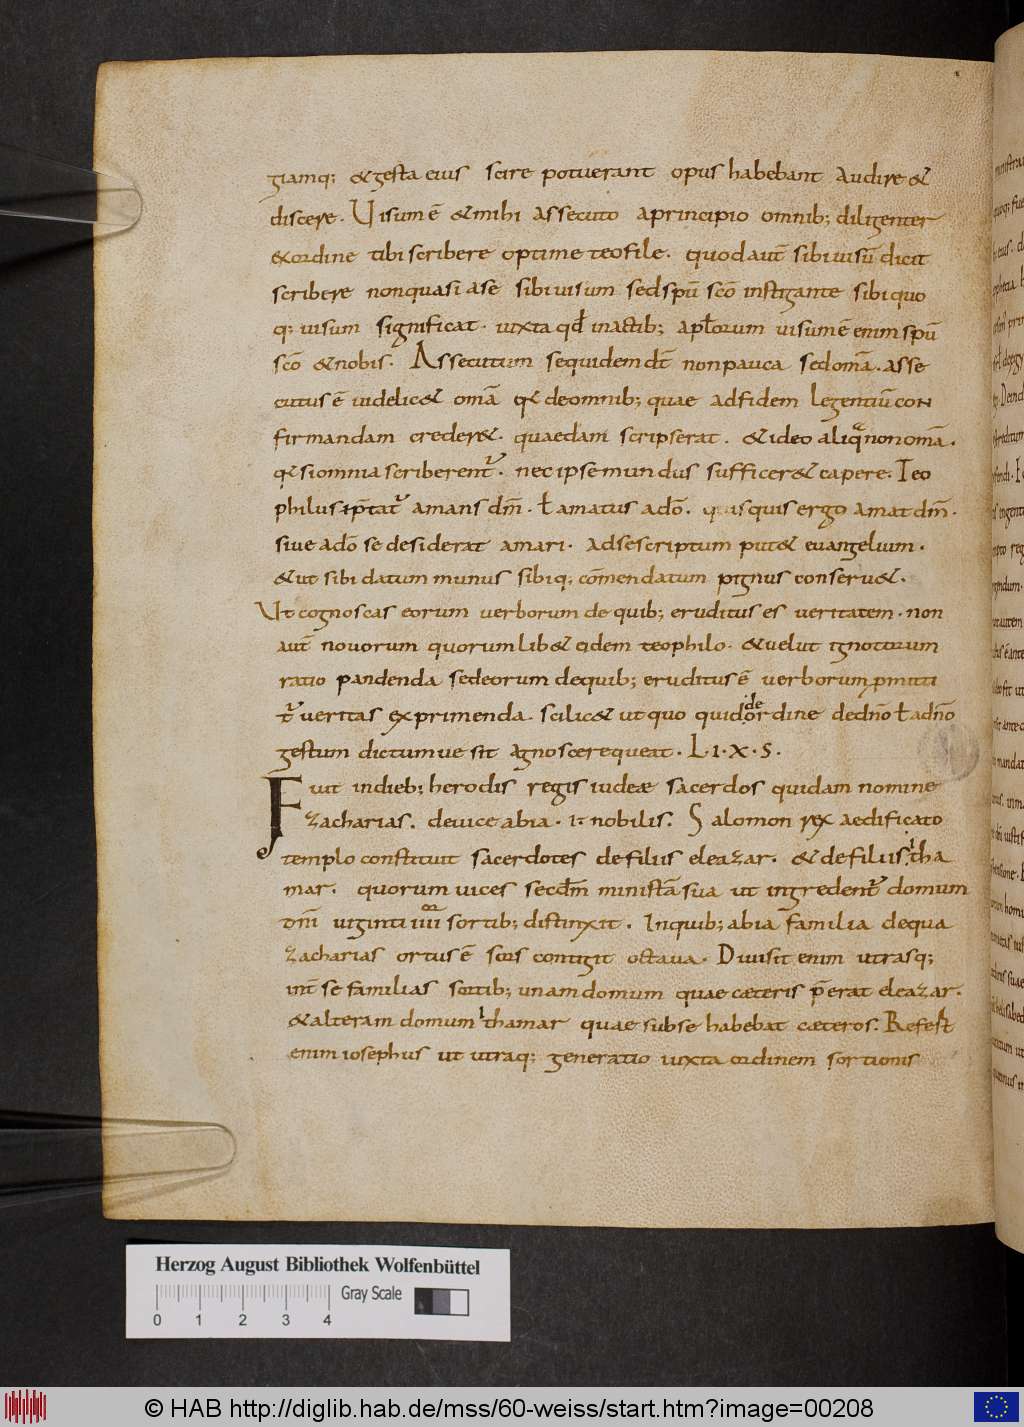 giamq; & gesta eius scire potuerant opus habebant audire &
discere. Uisum ē & mihi assecuto a principio omnib; diligenter
& ordine tibi scribere optime teofile. quod aut̄ sibi uisū dicit
scribere non quasi a se sibi uisum sed sp̄u sc̄o instigante sibi quo
q; uisum significat. iuxta qđ in actib; apł̄orum uisum ē enim sp̄u
sc̄o & nobis. Assecutum se quidem dt̄ non pauca sed om̄a. asse
cutus ē uidelic& om̄a q& de omnib; quae ad fidem legentiū con
firmandam creder&. quaedam scripserat. & ideo aliq̄ non om̄a.
q& si omnia scriberent᷑. nec ipse mundus suffiecer& capere. Teo
philus ip̄tat᷑ amans dm̄. ł amatus a dō. quisquis ergo amat dm̄.
siue a dō se desiderat amari. ad se scriptum put& euangelium.
& ut sibi datum munus sibiq; cōmendatum pignus conseru&.
Ut cognoscas eorum uerborum de quib; eruditus es ueritatem. non
aut̄ nouorum quorumlib& eidem teophilo. & uelut ignotorum
ratio pandenda sed eorum de quib; eruditus ē uerborum ꝓmitti
t᷑ ueritas exprimenda. scilic& ut quo quid ordine de dn̄o ł ad dn̄o
de
gestum dictumue sit agnoscere queat. L. I. X. S.
Fuit in dieb; herodis regis iudeae sacerdos quidam nomine
zacharias. de uice abia. i᷑ nobilis. Salomon rex aedificato
templo constituit sacerdotes de filiis eleazar. & de filiis itha
mar. quorum uices secdm̄ ministm̄ sua ut ingredent᷑ domum
dn̄i uiginti iiii or sortib; distinxit. In quib; abia familia de qua
zacharias ortus ē sors contigit octaua. Diuisit enim utrasq;
int̄ se familias sortib; unam domum quae caeteris p̄erat eleazar.
& alteram domum ithamar quae sub se habebat caeteros. Refert
enim iosephus ut utraq; generatio iuxta ordinem sortionis
Herzog August Bibliothek Wolfenbüttel
Gray Scale
0 1 2 3 4
© HAB http://diglib.hab.de/mss/60-weiss/start.htm?image=00208